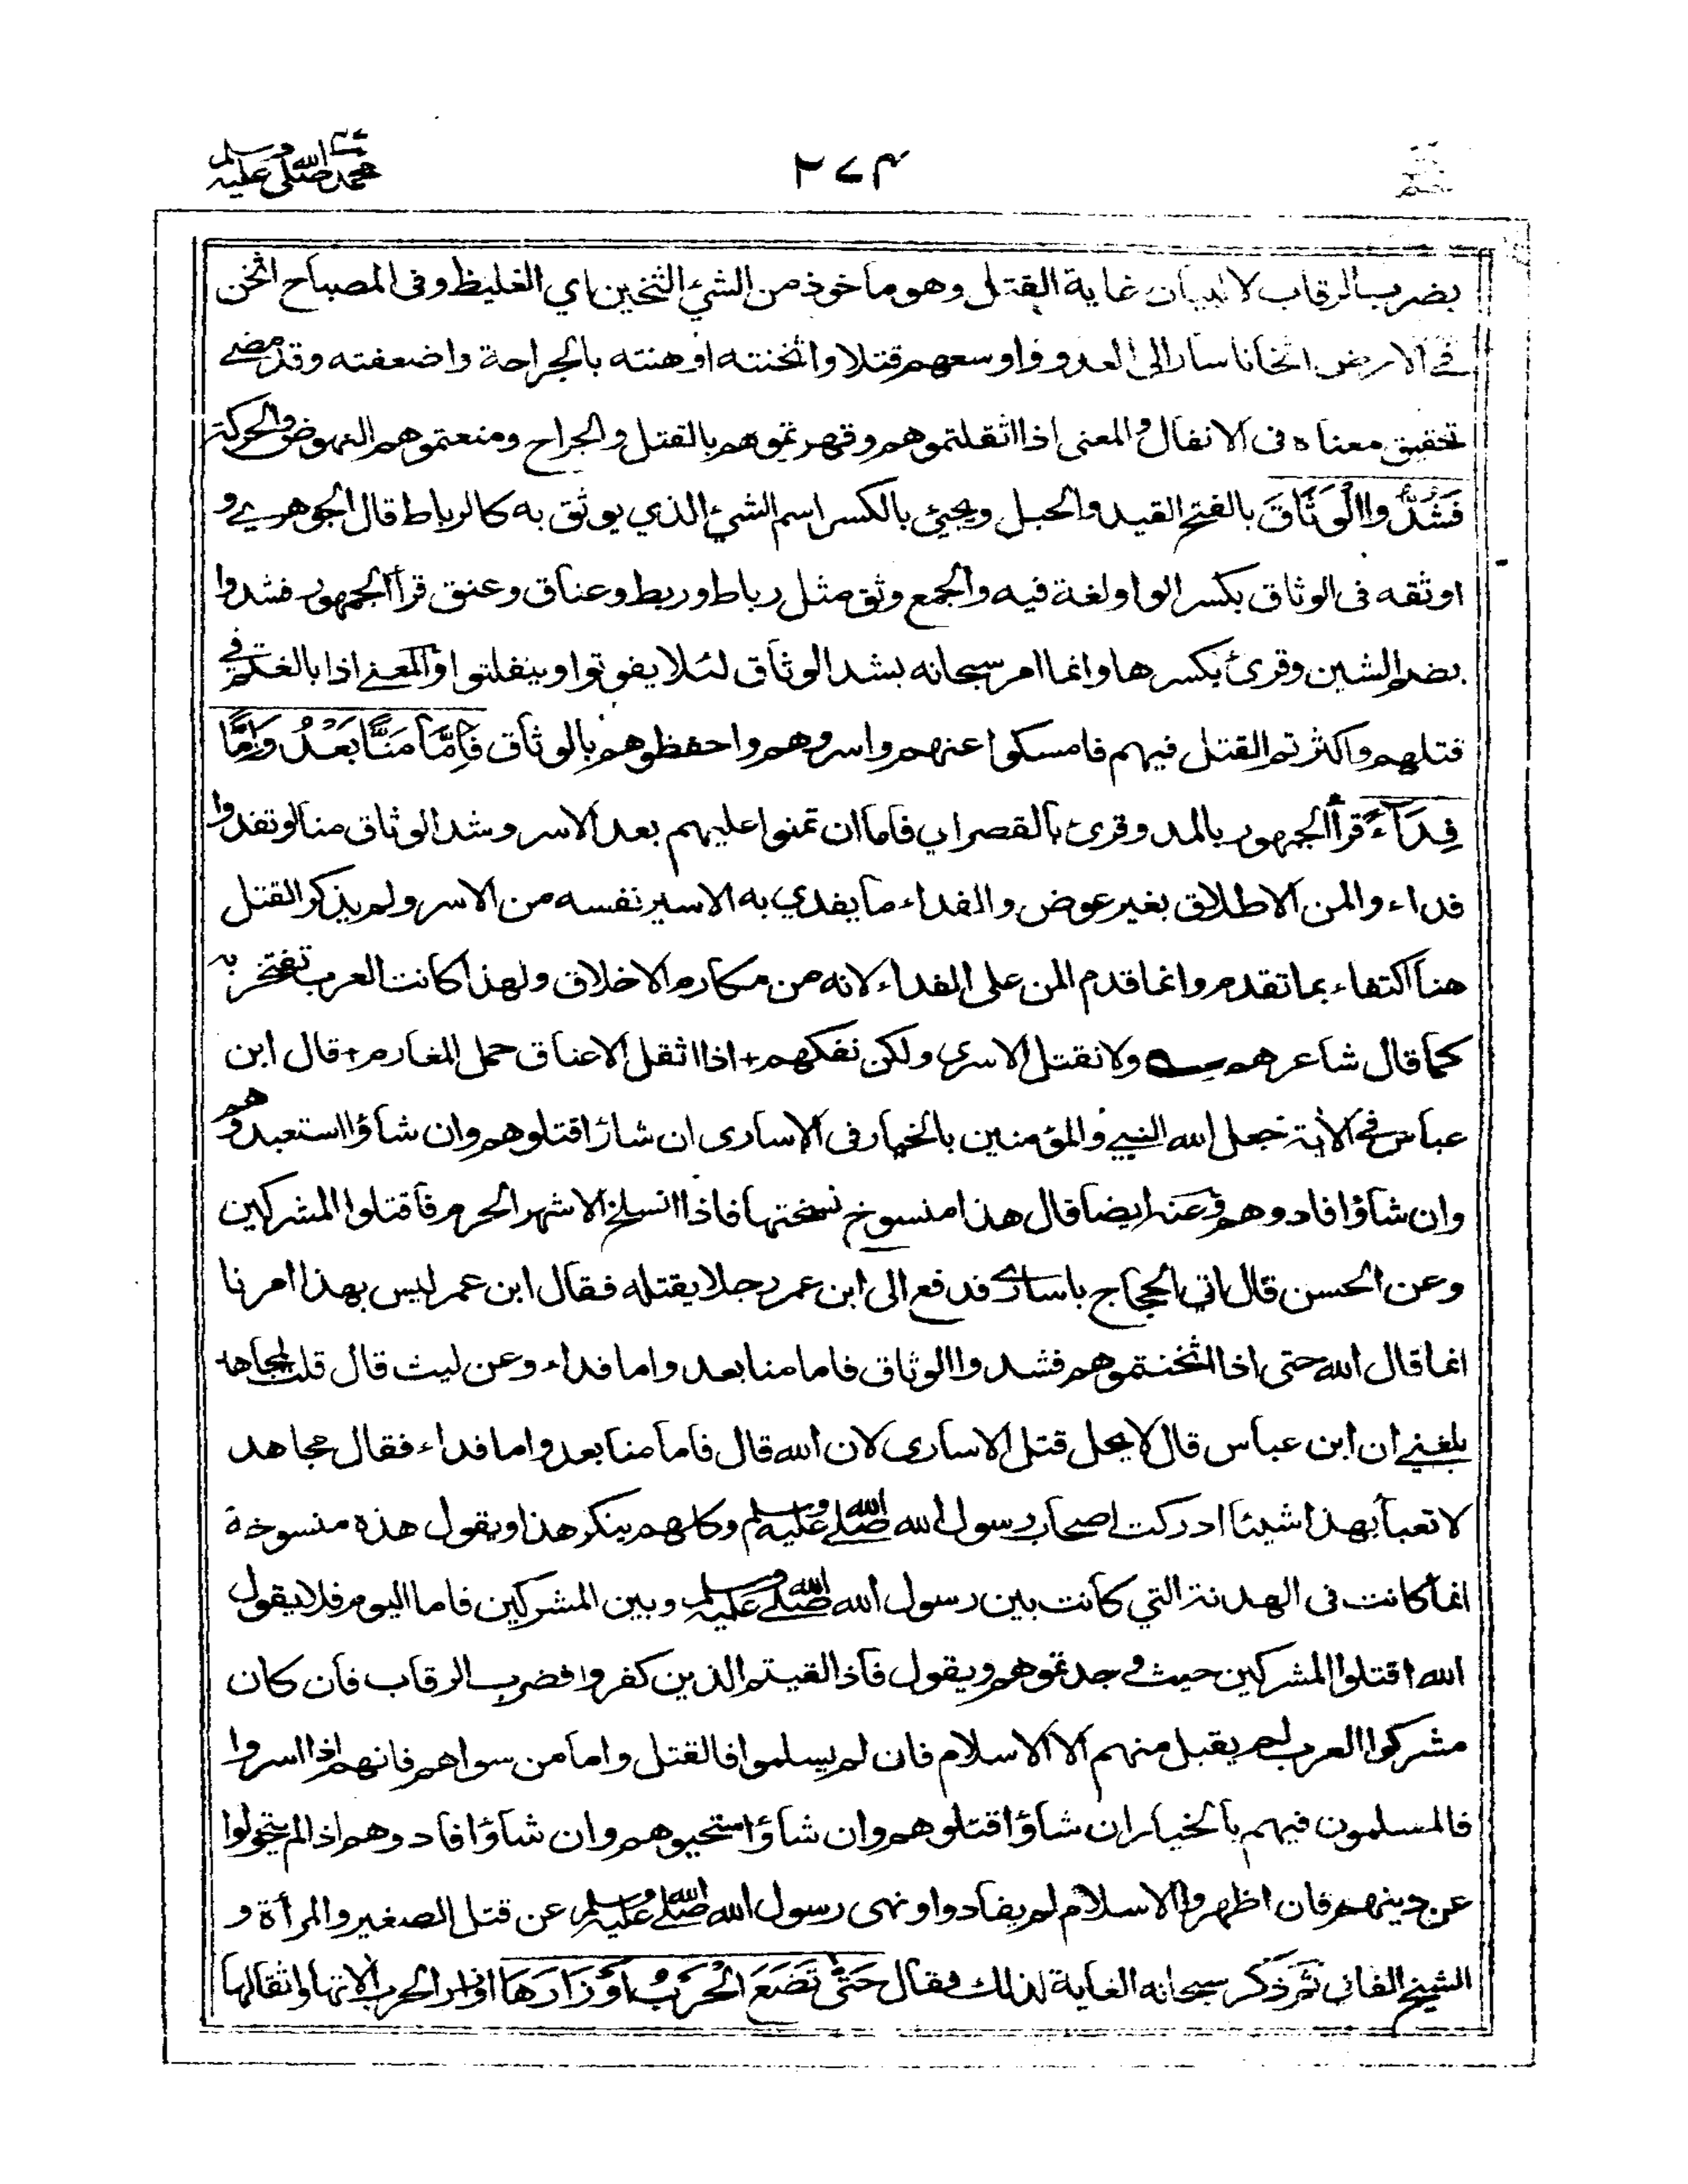 محمد صلى الله عليه وسلم
٢٧٤
حم
بضرب الرقاب لا لبيان غاية القتل وهو مأخوذ من الشيء الثخين اي الغليظ وفى المصباح اثخن
فے الارض اثخانا سار الى العدو واوسعهم قتلا واثخنته اوهنته بالجراحة واضعفته وقد مضے
تحقيق معناه فى الانفال والمعنى اذا اثقلتموهم وقهرتموهم بالقتل والجراح ومنعتموهم النهوض والحركة
فَشُدُّوا الْوَثَاقَ بالفتح القيد والحبل ويجيئ بالكسر اسم الشيء الذي يوثق به كالرباط قال الجوهرے و
اوثقه فى الوثاق بكسر الواو لغة فيه والجمع وثق مثل رباط وربط وعناق وعنق قرأ الجمهور فشدوا
بضم الشين وقرئ بكسرها وانما امر سبحانه بشد الوثاق لئلا يفوتوا وينفلتوا والمعنے اذا بالغتم في
قتلهم واكثرتم القتل فيهم فامسكوا عنهم واسروهم واحفظوهم بالوثاق فَاِمَّا مَنًّا بَعْدُ وَاِمَّا
فِدَآءً قرأ الجمهور بالمد وقرئ بالقصر اي فاما ان تمنوا عليهم بعد الاسر وشد الوثاق منا او تفدوا
فداء والمن الاطلاق بغير عوض والفداء ما يفدي به الاسير نفسه من الاسر ولم يذكر القتل
هنا اكتفاء بما تقدم وانما قدم المن على الفداء لانه من مكارم الاخلاق ولهذا كانت العرب تفتخر به
كما قال شاعرهم ؎ ولا نقتل الاسرى ولكن نفكهم + اذا اثقل الاعناق حمل المغارم + قال ابن
عباس فى الآية جعل الله النبي والمؤمنين بالخيار فى الاسارى ان شاؤا قتلوهم وان شاؤا استعبدوهم
وان شاؤا فادوهم وعنه ايضا قال هذا منسوخ نسختها فاذا انسلخ الاشهر الحرم فاقتلوا المشركين
وعن الحسن قال اتي الحجاج باسارى فدفع الى ابن عمر رجلا يقتله فقال ابن عمر ليس بهذا امرنا
انما قال الله حتى اذا اثخنتموهم فشدوا الوثاق فاما منا بعد واما فداء وعن ليث قال قلت لمجاهد
بلغنے ان ابن عباس قال لا يحل قتل الاسارى لان الله قال فاما منا بعد واما فداء فقال مجاهد
لا تعبأ بهذا شيئا ادركت اصحاب رسول الله صلى الله عليه وسلم وكلهم ينكر هذا ويقول هذه منسوخة
انما كانت فى الهدنة التي كانت بين رسول الله صلى الله عليه وسلم وبين المشركين فاما اليوم فلا يقول
الله اقتلوا المشركين حيث وجدتموهم ويقول فاذا لقيتم الذين كفروا فضرب الرقاب فان كان
مشركوا العرب لم يقبل منهم الا الاسلام فان لم يسلموا فالقتل واما من سواهم فانهم اذا اسروا
فالمسلمون فيهم بالخيار ان شاؤا قتلوهم وان شاؤا استحيوهم وان شاؤا فادوهم اذا لم يتحولوا
عن دينهم فان اظهروا الاسلام لم يفادوا ونهى رسول الله صلى الله عليه وسلم عن قتل الصغير والمرأة و
الشيخ الفاني ثم ذكر سبحانه الغاية لذلك فقال حَتّٰى تَضَعَ الْحَرْبُ اَوْزَارَهَا اوزار الحرب آلاتها واثقالها